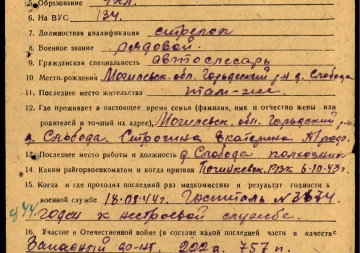 5. Образование 4 кл.
6. На ВУС 134.
7. Должностная квалификация стрелок
8. Военное звание рядовой.
9. Гражданская специальность автослесарь
10. Место рождения Могилевск. обл. Городецкий р-н д. Слобода
11. Последнее место жительства там-же.
12. Где проживает в настоящее время семья (фамилия, имя и отчество жены или
родителей и точный их адрес), Могилевск. обл. Городецкий р-н
д. Слобода. Строгина Екатерина
13. Последнее место работы и должность д. Слобода колхозник
14. Каким райгорвоенкоматом и когда призван РВК 6.10.43г.
15. Когда и где проходил последний раз медкомиссию и результат годности к
военной службе 18.08.44г. Госпиталь № 3374
годен к нестроевой службе.
16. Участие в Отечественной войне (в составе какой последней части и в качестве
Западный фр-нт. 202 д. 757 п.